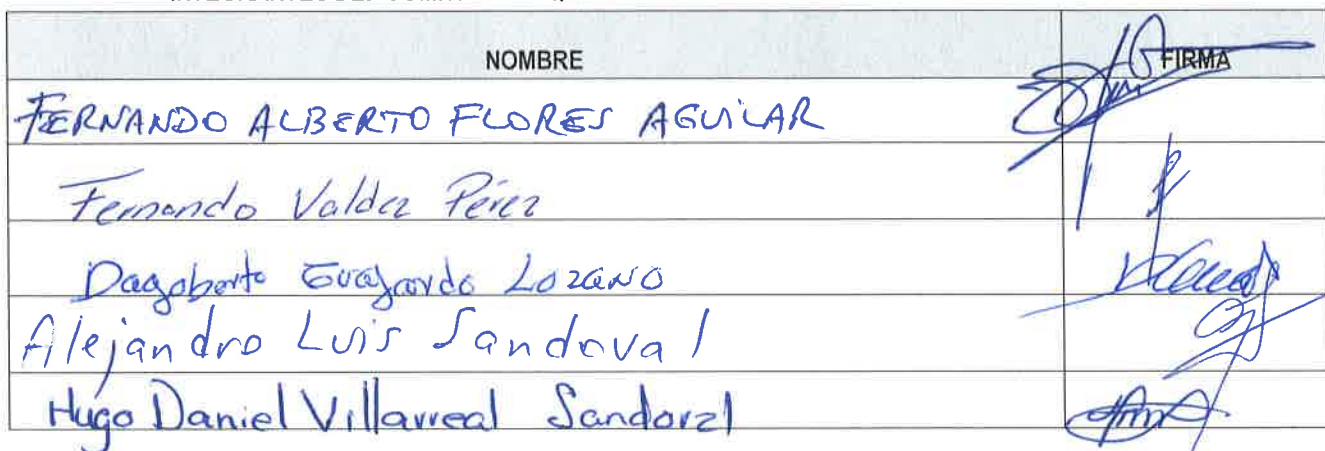 NOMBRE FIRMA
FERNANDO ALBERTO FLORES AGUILAR
Fernando Valdez Pérez
Dagoberto Guajardo Lozano
Alejandro Luis Sandoval
Hugo Daniel Villarreal Sandoval